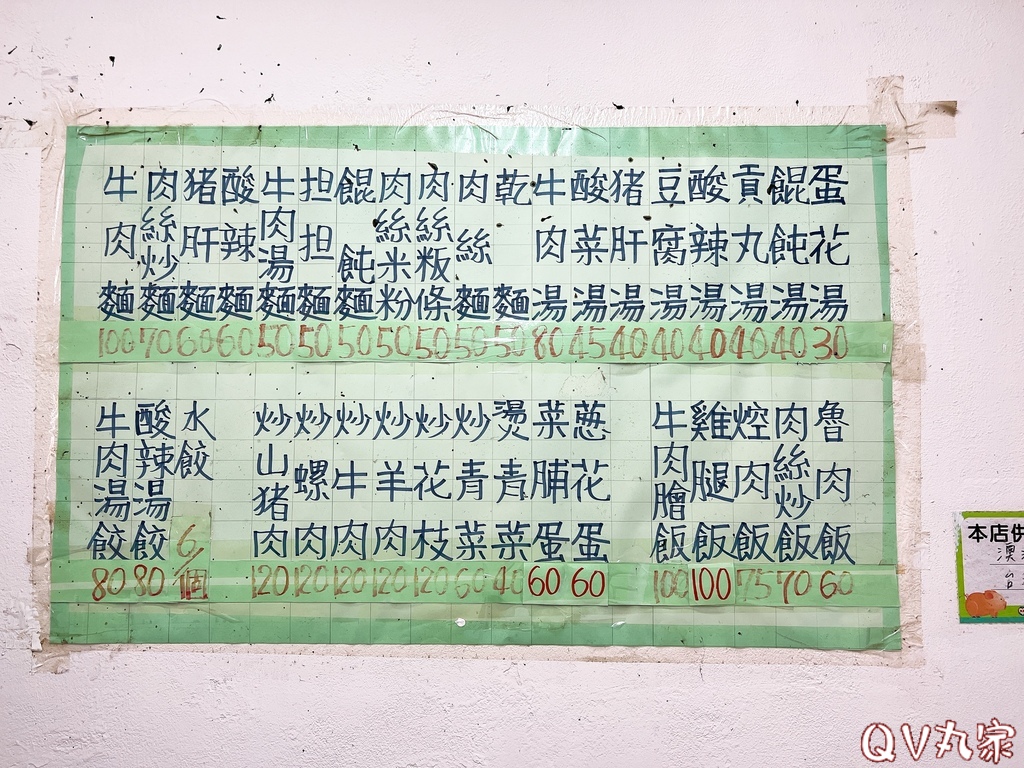 牛肉麵 100
肉絲炒麵 70
猪肝麵 60
酸辣麵 60
牛肉湯麵 50
担担麵 50
餛飩麵 50
肉絲米粉 50
肉絲粄條 50
肉絲麵 50
乾麵 50
牛肉湯 80
酸菜湯 45
猪肝湯 40
豆腐湯 40
酸辣湯 40
貢丸湯 40
餛飩湯 40
蛋花湯 30
牛肉湯餃 80
酸辣湯餃 80
水餃 6/個
炒山猪肉 120
炒螺肉 120
炒牛肉 120
炒羊肉 120
炒花枝 120
炒青菜 60
燙青菜 40
菜脯蛋 60
葱花蛋 60
牛肉膾飯 100
雞腿飯 100
焢肉飯 75
肉絲炒飯 70
魯肉飯 60
本店供
QV丸家